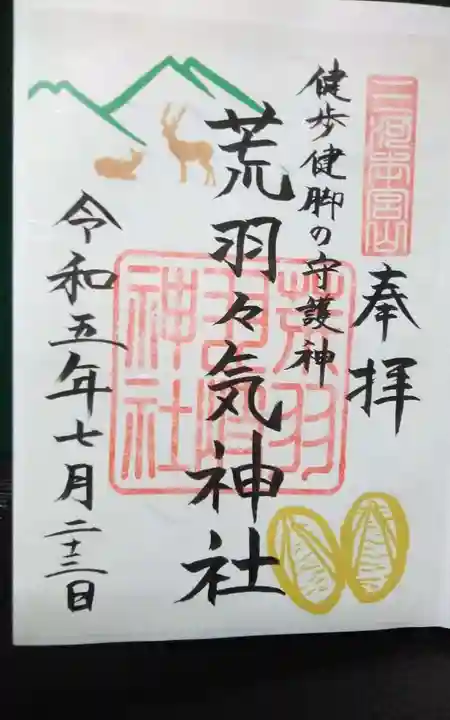 三河本宮山
奉拝
健歩健脚の守護神
荒羽々気神社
荒羽
羽氣
神社
令和五年七月二十二日